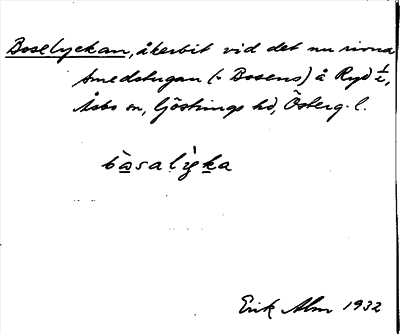 Boselyckan, åkerbit vid det nu rivna
Smedstugan (= Bosens) å Ryd ½,
Åsbo sn, Göstrings hd, Österg. l.
bòsalỳka
Erik Alm 1932